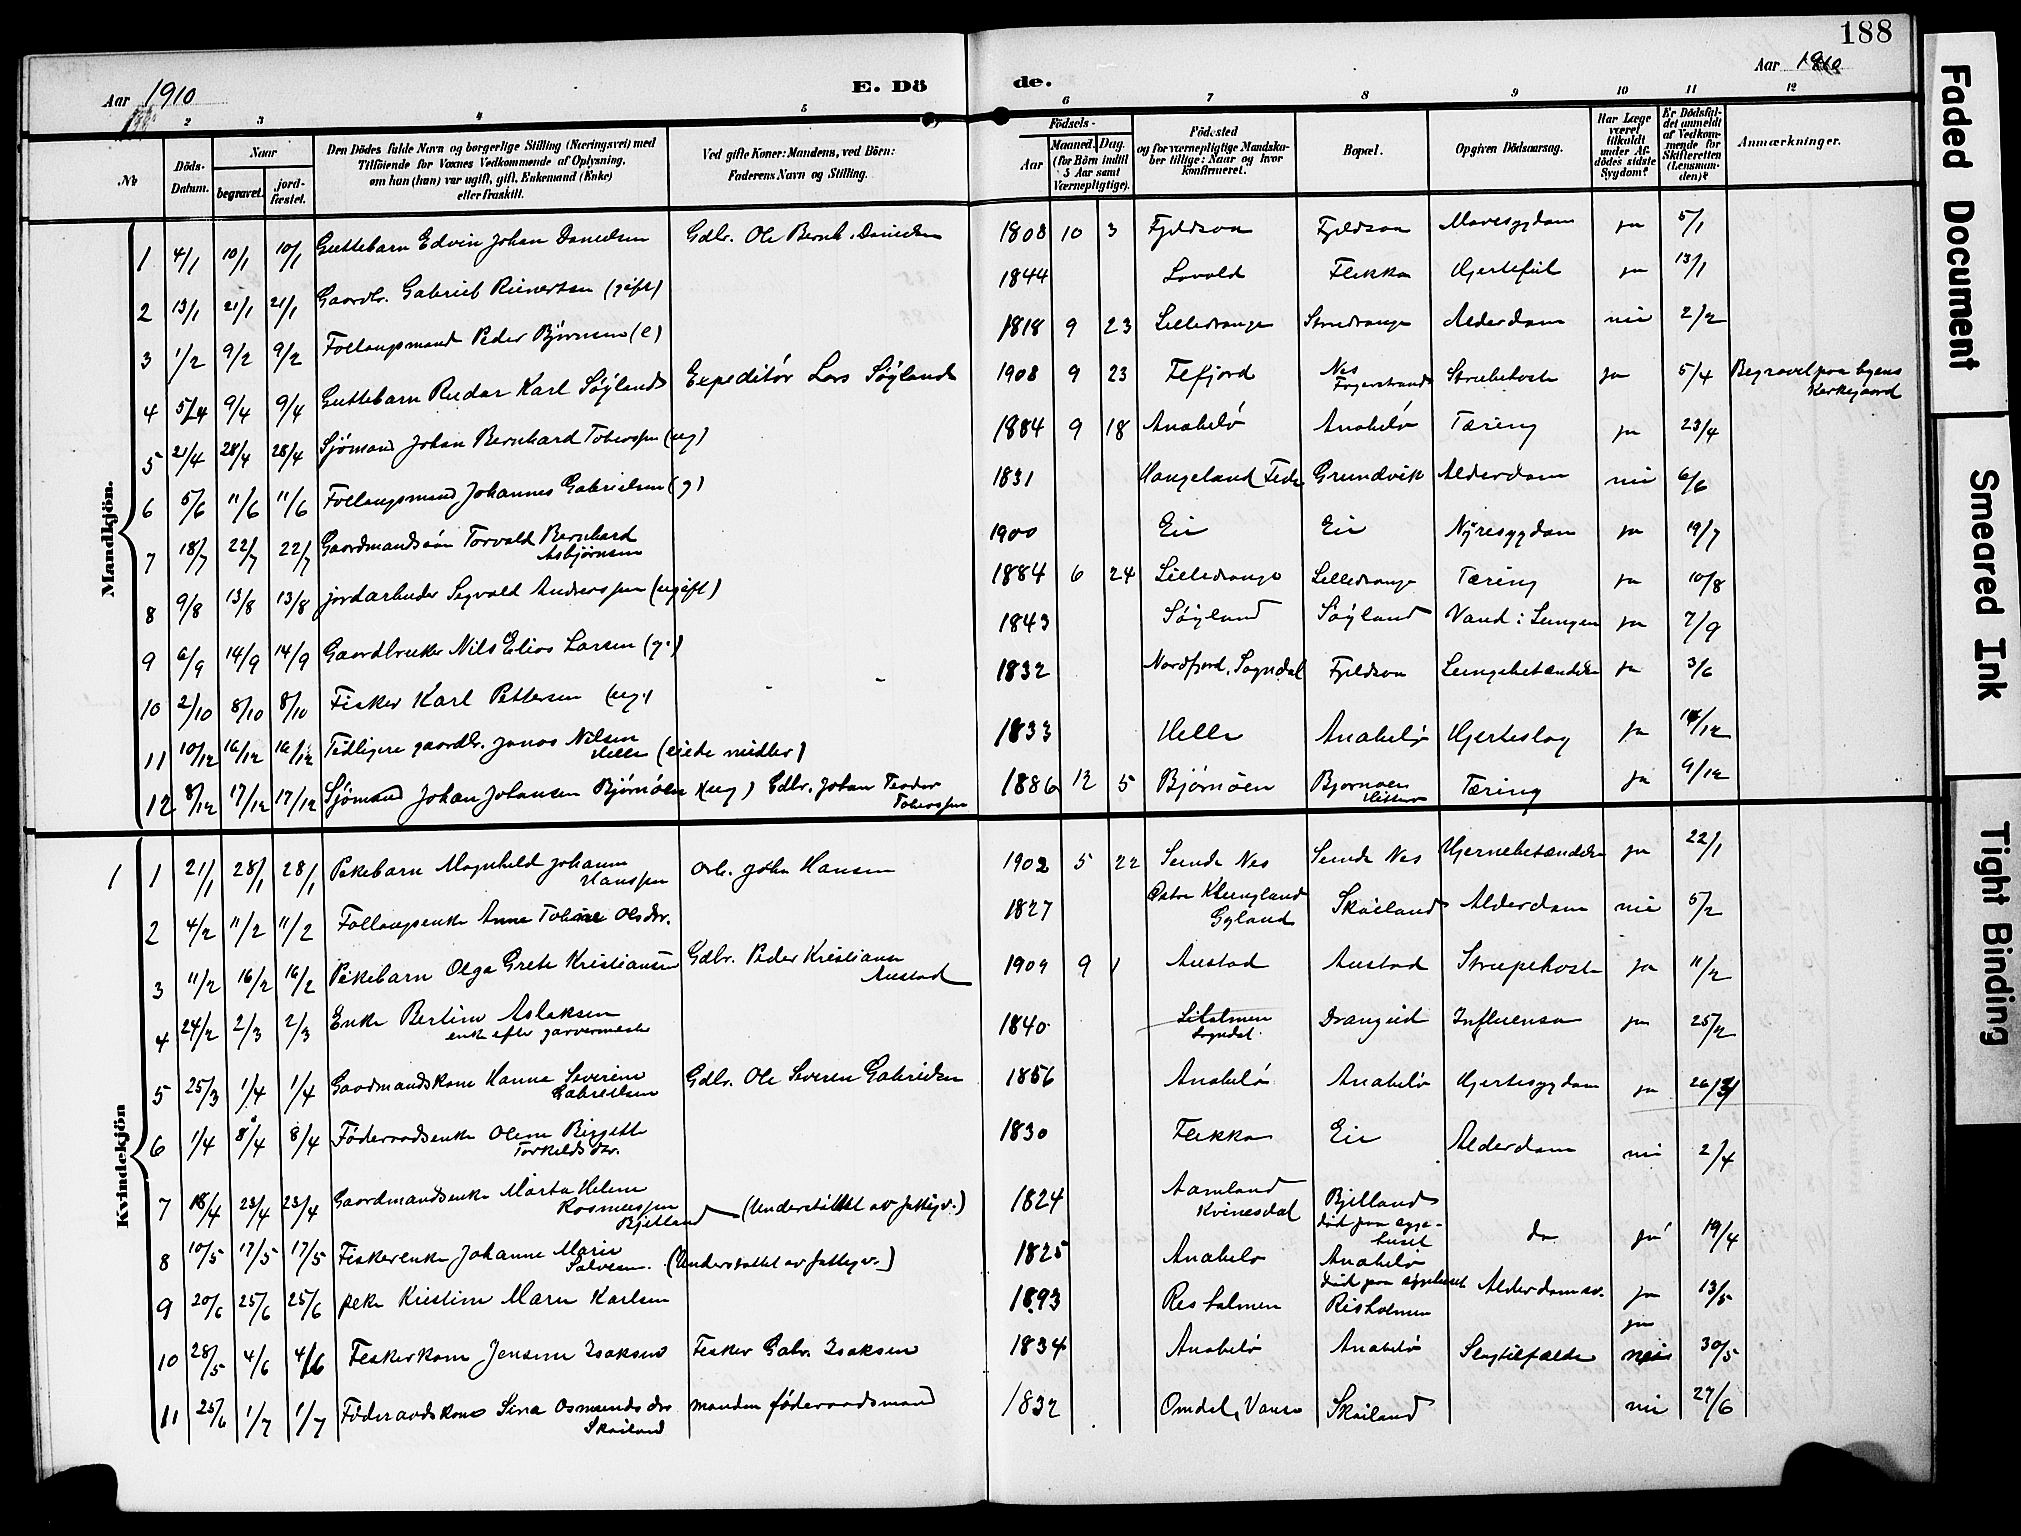 188
Aar 1910
E. Dö
de.
Aar 1910
2 3 4 5 6 7 8 9 10 11 12
No.
Döds-Datum.
Naar
begravet.
jord-fæstet.
Den Dödes fulde Navn og borgerlige Stilling (Næringsvei) med
Tilföiende for Voxnes Vedkommende af Oplysning,
om han (hun) var ugift, gift, Enkemand (Enke)
eller fraskilt.
Ved gifte Koner: Mandens, ved Börn:
Faderens Navn og Stilling.
Födsels-
Aar
Maaned. Dag.
(for Börn indtil
5 Aar samt
Værnepligtige).
Födested
og for værnepligtige Mandska-
ber tillige: Naar og hvor
konfirmeret.
Bopæl.
Opgiven Dödsaarsag.
Har Læge
været
tilkaldt
under Af-
dödes sidste
Sygdom?
Er Dödsfal-
det anmeldt
af Vedkom-
mende for
Skifteretten
(Lensman-
den)?
Anmærkninger.
Mandkjön.
1 4/1 10/1 10/1 Guttebarn Edvin Johan Danielsen Gdbr. Ole Bernh. Danielsen 1908 10 3 Fjeldsaa Fjeldsaa Mavesygdom ja 5/1
2 13/1 21/1 21/1 Gaardbr. Gabriel Reinertsen (gift) 1844 Lovold Flikka Hjertefeil ja 13/1
3 1/2 9/2 9/2 Follaugsmand Peder Bjørnsen (e) 1818 9 23 Lilledrange Storedrange Alderdom nei 2/2
4 5/4 9/4 9/4 Guttebarn Reidar Karl Søyland Expeditør Lars Søyland 1908 9 23 Fefjord Nes Strubehoste ja 5/4 Begravet paa byens
Kirkegaard
5 21/4 28/4 28/4 Sjømand Johan Bernhard Tobiassen (ug) 1884 9 18 Anabelø Anabelø Tæring ja 23/4
6 5/6 11/6 11/6 Follaugsmand Johannes Gabrielsen (g) 1831 Haugeland Feda Grundvik Alderdom nei 6/6
7 18/7 22/7 22/7 Gaardmandssøn Torvald Bernhard
Asbjørnsen 1900 Eie Eie Nyresygdom ja 19/7
8 9/8 13/8 13/8 jordarbeider Sigvald Andreassen (ugift) 1884 6 24 Lilledrange Lilledrange Tæring ja 10/8
9 6/9 14/9 14/9 Gaardbruker Nils Elias Larsen (g.) 1843 Søyland Søyland Vand i Lungen ja 7/9
10 2/10 8/10 8/10 Fisker Karl Pettersen (ug.) 1832 Nordfjord, Sogndal Fjeldsaa Lungebetændelse ja 3/6
11 10/12 16/12 16/12 Tidligere gaardbr. Jonas Nilsen
Helle (eiede midler) 1833 Helle Anabelø Hjerteslag ja 14/12
12 8/12 17/12 17/12 Sjømand Johan Johansen Bjørnøen (ug) Gdbr. Johan Teodor
Tobiassen 1886 12 5 Bjørnøen Bjørnøen
Hitterø Tæring ja 9/12
Kvindekjön
1 1 21/1 28/1 28/1 Pikebarn Magnhild Johanne
Hanssen Arb. John Hansen 1902 5 22 Sunde Nes Sunde Nes Hjernebetændelse ja 22/1
2 4/2 11/2 11/2 Follaugsenke Anne Tobine Olsdtr. 1827 Østre Klungland
Gyland Skoiland Alderdom nei 5/2
3 11/2 16/2 16/2 Pikebarn Olga Grete Kristiansen Gdbr. Peder Kristiansen
Austad 1909 9 1 Austad Austad Strupehoste ja 11/2
4 24/2 2/3 2/3 Enke Bertine Aslaksen
enke efter garvermester 1840 Sogndal. Drangeid Influensa ja 25/2
5 25/3 1/4 1/4 Gaardmandskone Hanne Severine
Gabrielsen Gdbr. Ole Severin Gabrielsen 1856 Anabelø Anabelø Hjertesygdom ja 26/3
6 1/4 8/4 8/4 Føderaadsenke Oline Birgitte
Torkildsdtr. 1830 Flikka Eie Alderdom nei 2/4
7 18/4 23/4 23/4 Gaardmandsenke Marta Helene
Rasmussen
Bjelland (Understøttet av fattigv.) 1824 Aamland
Kvinesdal Bjelland
død paa syge-
huset do ja 19/4
8 10/5 17/5 17/5 Fiskerenke Johanne Marie
Salvesen. (Understøttet av fattigv.) 1825 Anabelø Anabelø
død paa sygehuset Alderdomssv. ja 13/5
9 20/6 25/6 25/6 pike Kristine Marie Karlsen 1893 Risholmen Risholmen ja
10 28/5 4/6 4/6 Fiskerkone Jensine Isaksen Fisker Gabr. Isaksen 1834 Anabelø Anabelø Slagtilfælde nei 30/5
11 25/6 1/7 1/7 Føderaadskone Sina Osmundsdtr
Skoiland manden føderaadsmand 1832 Omdal, Vanse Skoiland nei 27/6
Faded Document
Smeared Ink
Tight Binding